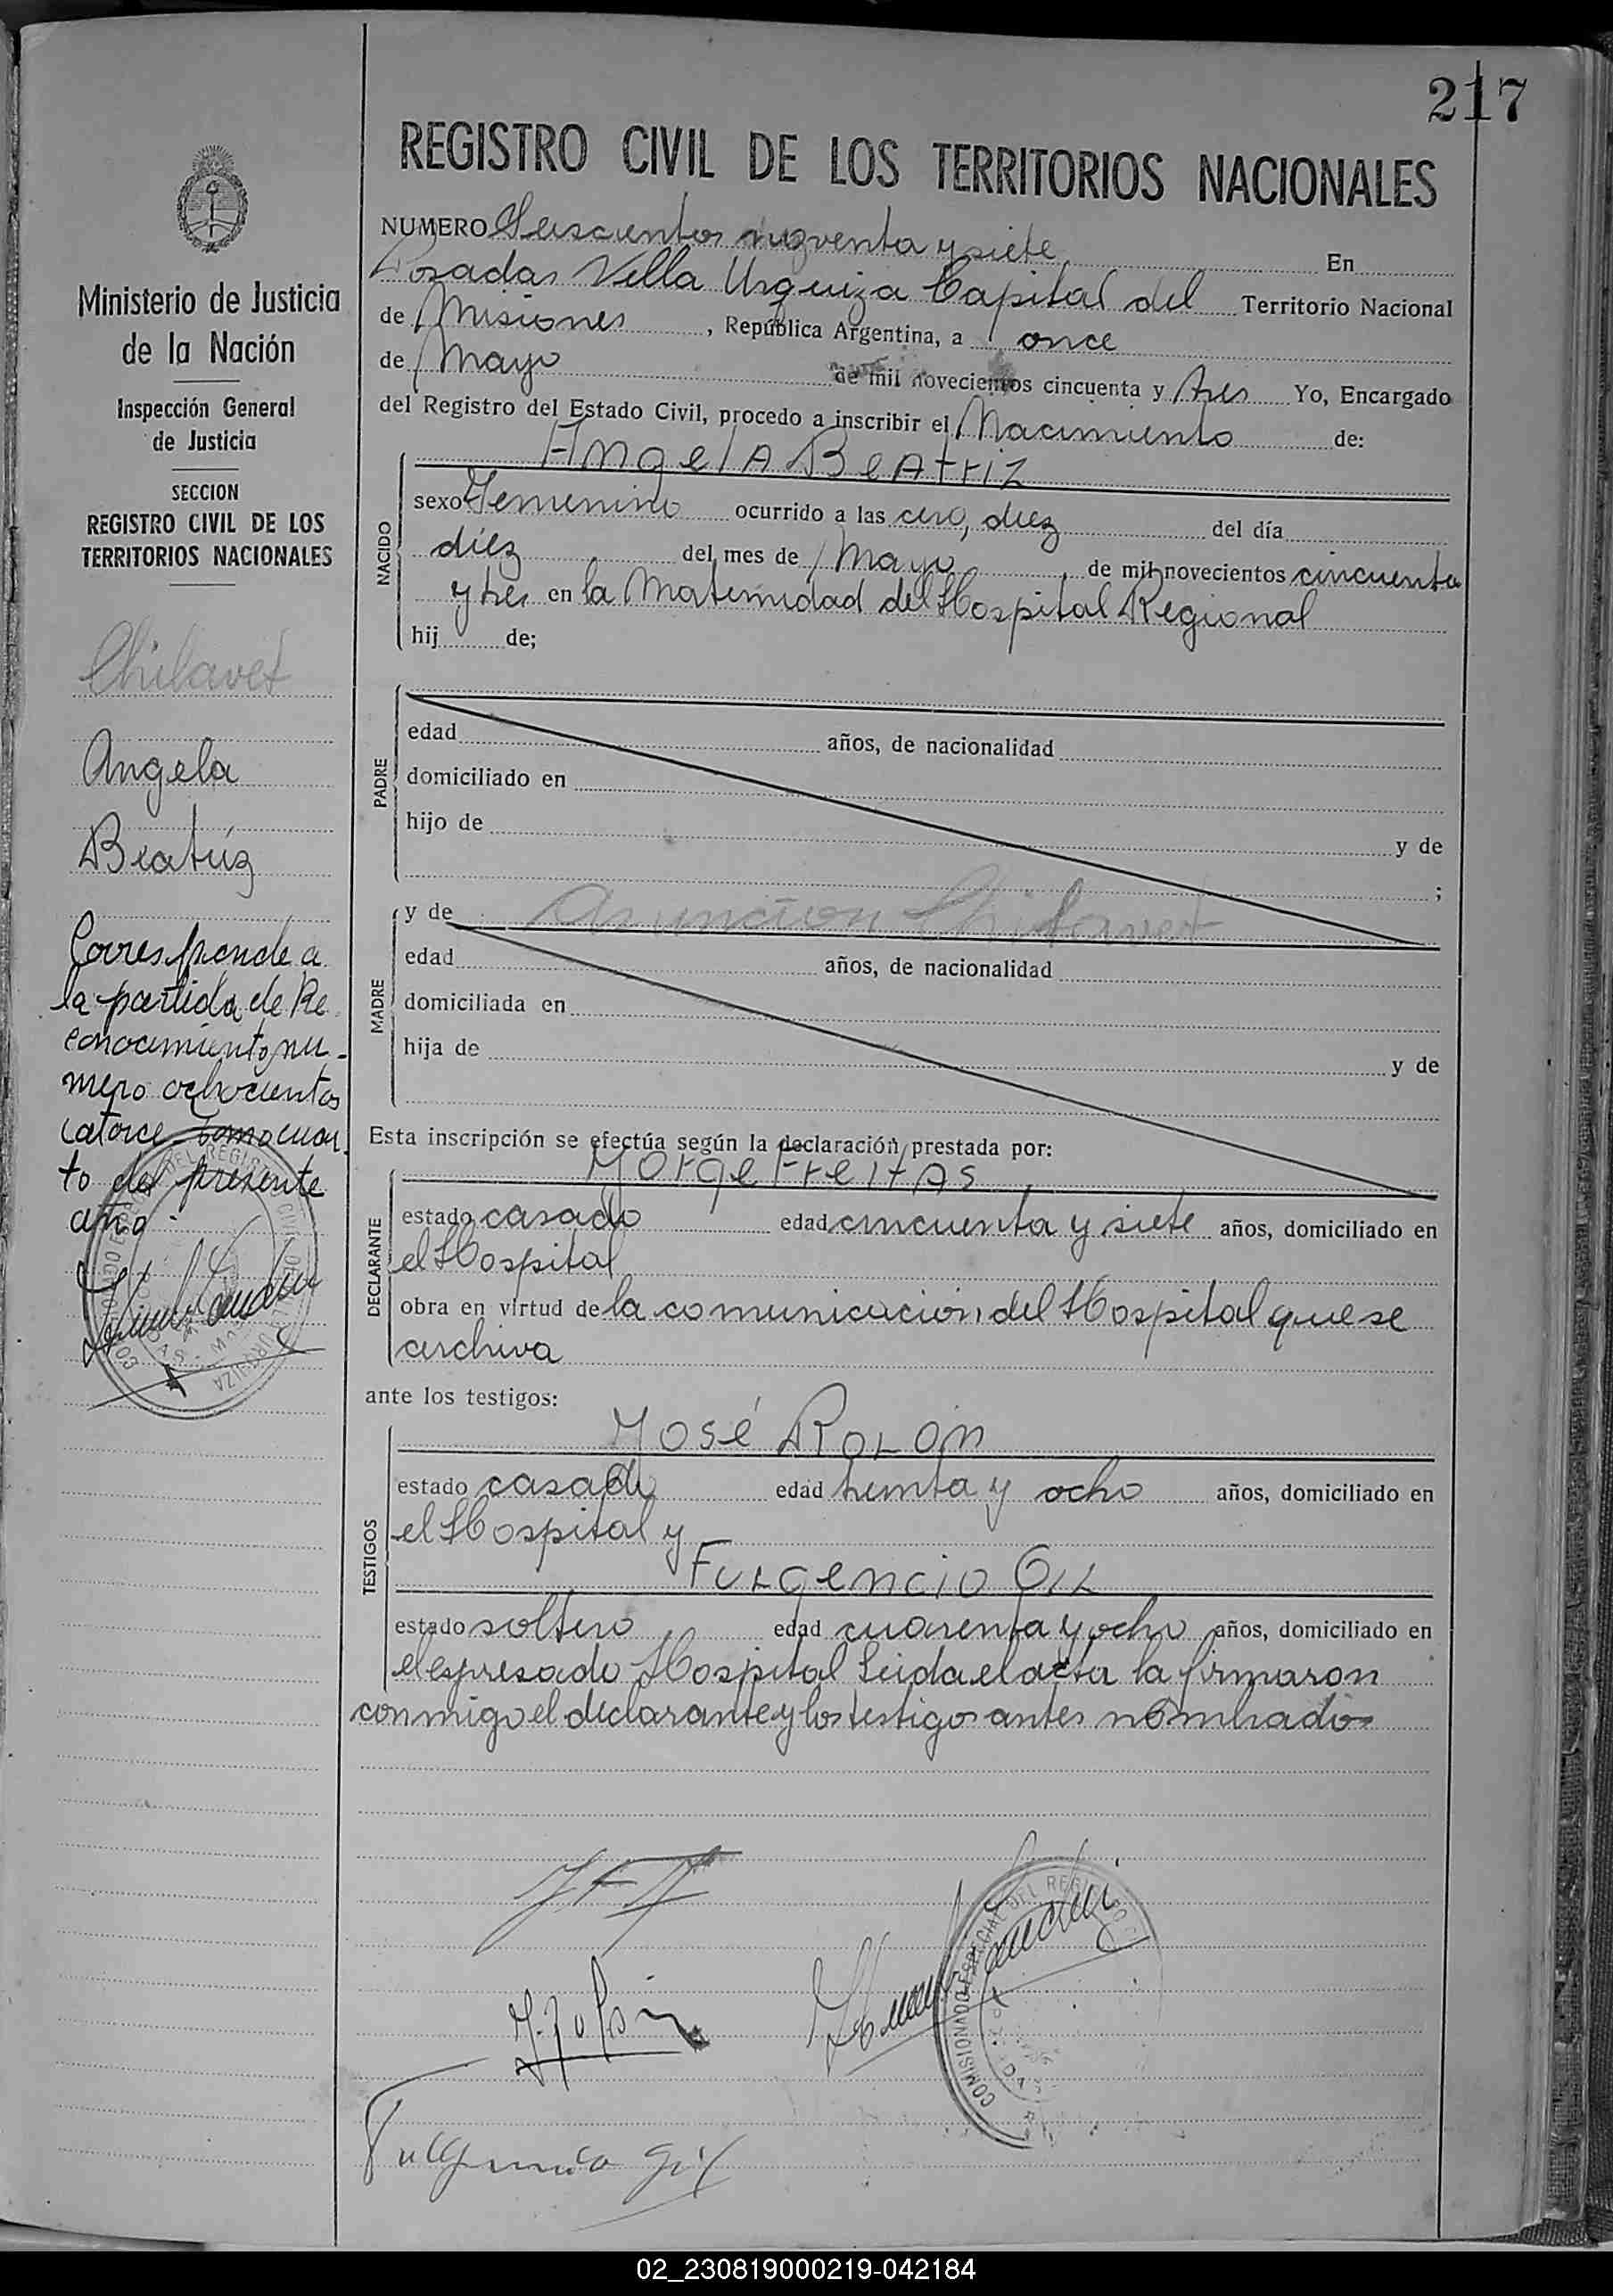 217
REGISTRO CIVIL DE LOS TERRITORIOS NACIONALES
NUMERO Seiscientos noventa y siete En
Posadas Villa Urquiza Capital del Territorio Nacional
de Misiones, República Argentina, a once
de Mayo de mil novecientos cincuenta y tres Yo, Encargado
del Registro del Estado Civil, procedo a inscribir el Nacimiento de:
Angela Beatriz
NACIDO
sexo Femenino ocurrido a las cero, diez del día
diez del mes de Mayo de mil novecientos cincuenta
y tres en la Maternidad del Hospital Regional
hij de;
PADRE
edad años, de nacionalidad
domiciliado en
hijo de y de
;
MADRE
y de Asuncion Chilavet
edad años, de nacionalidad
domiciliada en
hija de y de
Esta inscripción se efectúa según la declaración prestada por:
Jorge Freitas
DECLARANTE
estado casado edad cincuenta y siete años, domiciliado en
el Hospital
obra en virtud de la comunicación del Hospital que se
archiva
ante los testigos:
José Rolón
TESTIGOS
estado casado edad treinta y ocho años, domiciliado en
el Hospital y
Fulgencio Gil
estado soltero edad cuarenta y ocho años, domiciliado en
el espresado Hospital Leida el acta la firmaron
conmigo el declarante y los testigos antes nombrados
Fulgencio Gil
COMISIONADO ESPECIAL DEL REGISTRO
Ministerio de Justicia
de la Nación
Inspección General
de Justicia
SECCION
REGISTRO CIVIL DE LOS
TERRITORIOS NACIONALES
Chilavet
Angela
Beatriz
Corresponde a
la partida de Re
conocimiento nu-
mero ochocientos
catorce tomo cuar
to del presente
año.
02_230819000219-042184